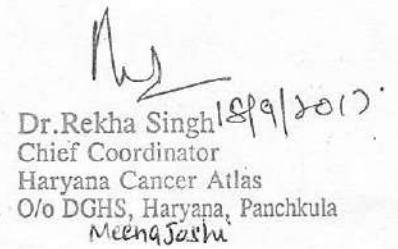 Dr.Rekha Singh 18/9/2017
Chief Coordinator
Haryana Cancer Atlas
O/o DGHS, Haryana, Panchkula
Meena Joshi